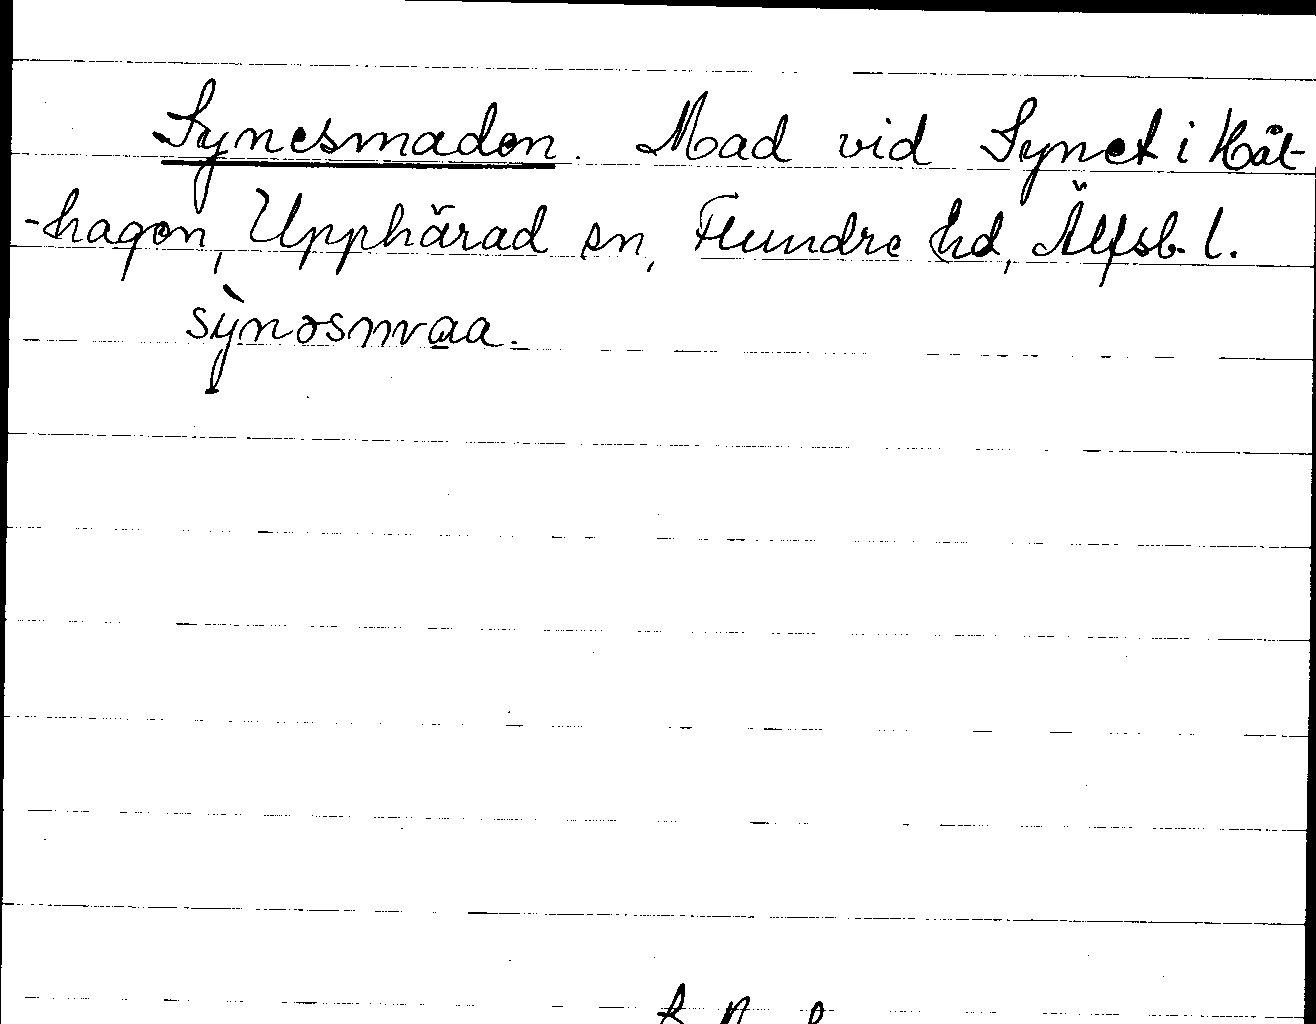 Synesmaden. Mad vid Synet i Håt-
-hagen, Upphärad sn, Flundre hd, Älfsb. l.
sỳ̠nəsmaa.